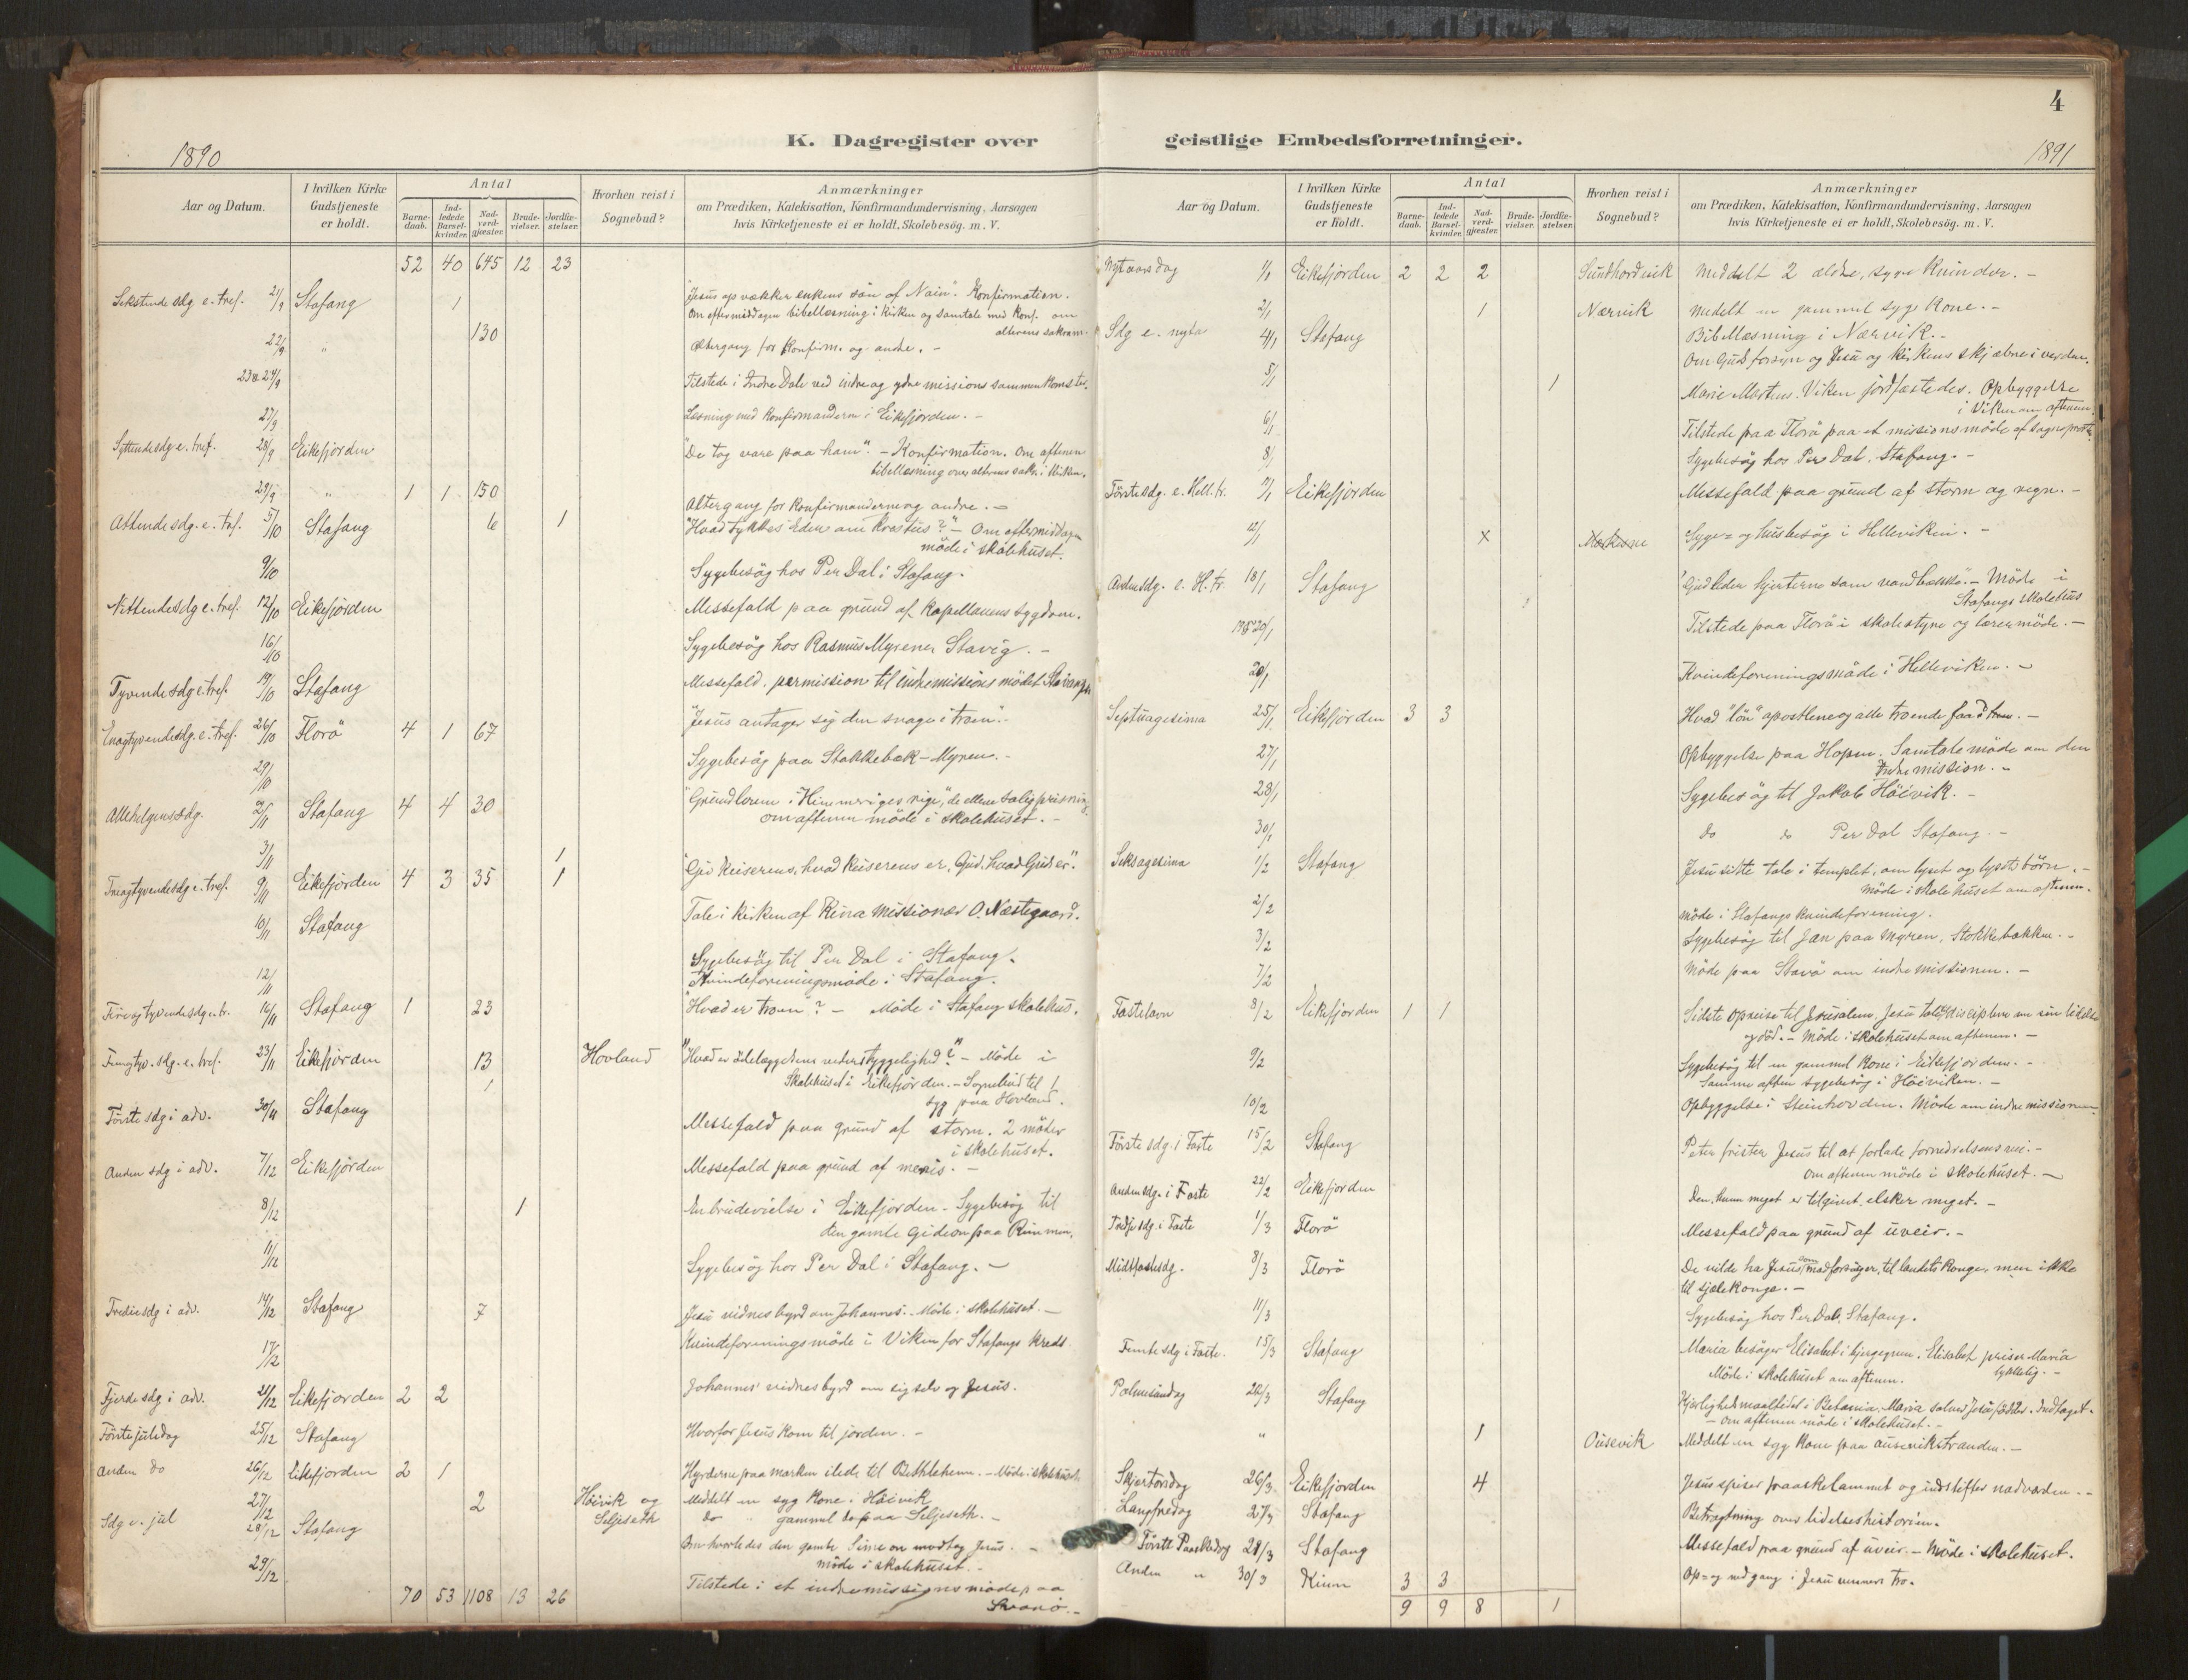 4
K. Dagregister over geistlige Embedsforretninger.
1890
Aar og Datum.
I hvilken Kirke Gudstjeneste er holdt.
Antal
Barne-daab.
Ind-ledede Barsel-kvinder.
Nad-verd-gjæster.
Brude-vielser.
Jordfæ-stelser.
Hvorhen reist i Sognebud?
Anmærkninger
om Prædiken, Katekisation, Konfirmandundervisning, Aarsagen
hvis Kirketjeneste ei er holdt, Skolebesög. m. V.
52 40 645 12 23
Sekstende sdg e. tref. 21/9 Stafang 1 "Jesus op vækker enkens sön af Nain". Konfirmation.
Om eftermiddagen bibellæsning i kirken og samtale med konf. om
alterens sakram.
22/9 " 130 Altergang for konfirm. og andre. -
23 & 24/9 Tilstede i Indre Dale ved indre og ydre missions sammenkomster.
27/9 Læsning med konfirmanderne i Eikefjorden. -
Syttende sdg e. tref. 28/9 Eikefjorden "De tog vare paa ham". - Konfirmation. Om aftenen
bibellæsning over alterens sakr. i Viken.
29/9 " 1 1 150 Altergang for konfirmanderne og andre. -
Attende sdg. e. tref. 5/10 Stafang 6 1 "Hvad tykkes Eder om Kristus?" - Om eftermiddagen
möde i skolehuset.
9/10 Sygebesög hos Per Dal i Stafang.
Nittende sdg e. tref. 12/10 Eikefjorden Messefald paa grund af kapellanens sygdom.
16/10 Sygebesög hos Rasmus Myrene, Stavig. -
Tyvende sdg e. tref. 19/10 Stafang Messefald. permission til indremissions mödet Stavanger
Enogtyvende sdg. e. tref. 26/10 Florö 4 1 67 "Jesus antager sig den svage i troen".
29/10 Sygebesög paa Stokkebæk-Myren. -
Allehelgens sdg. 2/11 Stafang 4 4 30 "Grundloven i Himmeriges rige", de ellers saligprisning.
om aftenen möde i skolehuset. -
3/11 1
Treogtyvende sdg e. tref. 9/11 Eikefjorden 4 3 35 1 "Giv keiserens, hvad keiserens er, Gud, hvad Guds er".
10/11 Stafang Tale i kirken af Kina missionær O. Næstegaard.
12/11 Sygebesög til Per Dal i Stafang.
Kvindeforeningsmöde i Stafang.
Fireogtyvende sdg e. tr. 16/11 Stafang 1 23 "Hvad er troen"? - Möde i Stafang skolehus.
Femogtyv. sdg. e. tref. 23/11 Eikefjorden 13 Hovland "Hvad er ödelæggelsens vederstyggelighed"? - Möde i
1 Skolehuset i Eikefjorden. - Sognebud til 1
syg paa Hovland.
Förste sdg i adv. 30/11 Stafang Messefald paa grund af storm. 2 möder
i skolehuset.
Anden sdg i adv. 7/12 Eikefjorden Messefald paa grund af menis. -
8/12 1 En brudevielse i Eikefjorden - Sygebesög til
den gamle Gideon paa Runmin.
11/12 Sygebesög hos Per Dal i Stafang. -
Tredie sdg i adv. 14/12 Stafang 7 Jesu vidnesbyrd om Johannes. - Möde i skolehuset. -
17/12 Kvindeforeningsmöde i Viken for Stafangs kreds
Fjerde sdg i adv. 21/12 Eikefjorden 2 2 Johannes' vidnesbyrd om sig selv og Jesus.
Förste juledag 25/12 Stafang Hvorfor Jesus kom til jorden. -
Anden do 26/12 Eikefjorden 2 1 Hyrderne paa marken ilede til Bethlehem. - Möde i skolehuset
27/12 2 Höivik og Meddelt en syg kone i Höivik
Seljeseth do " gammel do paa Seljeseth. -
Sdg e. jul 28/12 Stafang Om hvorledes den gamle Simeon modtog Jesus. -
möde i skolehuset. -
29/12 Tilstede i et indremissionsmöde paa
Svanö. -
70 53 1108 13 26
1891
Aar og Datum.
I hvilken Kirke Gudstjeneste er holdt.
Antal
Barne-daab.
Ind-ledede Barsel-kvinder.
Nad-verd-gjæster.
Brude-vielser.
Jordfæ-stelser.
Hvorhen reist i Sognebud?
Anmærkninger
om Prædiken, Katekisation, Konfirmandundervisning, Aarsagen
hvis Kirketjeneste ei er holdt, Skolebesög. m. V.
Nytaarsdag 1/1 Eikefjorden 2 2 2 Sundhordvik Meddelt 2 ældre, syge kvinder. -
2/1 1 Nærvik Medelt en gammel syg kone. -
Bibellæsning i Nærvik. -
Sdg e. nytaar 4/1 Stafang Om Guds forsyn og Jesu og kirkens skjæbne i verden.
5/1 1 Marie Martins. Viken jordfæstedes. Opbyggelse
i Viken om aftenen.
6/1 Tilstede paa Florö paa et missionsmöde af sogneprest
8/1 Sygebesög hos Per Dal, Stafang. -
Förste sdg. e. Hell. tr. 11/1 Eikefjorden Messefald paa grund af storm og regn. -
12/1 x Syge= og husbesög i Helleviken. -
Anden sdg. e. H. tr. 18/1 Stafang "Gud leder hjerterne som vandbække". - Möde i
Stafangs skolehus
19 & 20/1 Tilstede paa Florö i skolestyre og lærermöde. -
20/1 Kvindeforeningsmöde i Helleviken. -
Septuagesima 25/1 Eikefjorden 3 3 Hvad "lön" apostlene og alle troende faar i troen. -
27/1 Opbyggelse paa Hopen. Samtalemöde om den
Indremission. -
28/1 Sygebesög til Jakob Höivik. -
30/1 do do Per Dal Stafang. -
Seksagesima 1/2 Stafang Jesu sidste tale i templet, om lyset og lysets börn. -
möde i skolehuset om aftenen.
2/2 möde i Stafangs kvindeforening.
3/2 Sygebesög til Jan paa Myren, Stokkebækken. -
7/2 Möde paa Stavö om indremissionen. -
Fastelavn 8/2 Eikefjorden 1 1 Sidste opreise til Jerusalem. Jesu tale til disciplene om sin lidelse
og död. - Möde i skolehuset om aftenen. -
9/2 Sygebesög til en gammel kone i Eikefjorden. -
Samme aften sygebesög i Höiviken. -
10/2 Opbyggelse i Steinhovden. Möde om indremissionen.
Förste sdg. i Faste 15/2 Stafang Peter frister Jesus til at forlade fornedrelsens vei. -
Om aftenen möde i skolehuset. -
Anden sdg. i Faste 22/2 Eikefjorden Den, hvem meget er tilgivet, elsker meget. -
Tredje sdg. i Faste 1/3 Florö Messefald paa grund af uveir. -
Midtfastesdg. 8/3 Florö De vilde ha Jesus, som madforsörger, til landets konge, men ikke
til sjælekonge. -
11/3 Sygebesög hos Per Dal, Stafang.
Femte sdg i Faste. 15/3 Stafang Maria besöger Elisabet i bjergegnen. Elisabet priser Maria
Möde i skolehuset om aftenen. lykkelig. -
Palmesöndag 22/3 Stafang Kjærlighedsmaaltidet i Betania. Maria salver Jesu fødder. Indtoget.
- om aftenen möde i skolehuset. -
" 1 Ousevik Meddelt en syg kone paa ausevikstranden. -
Skjærtorsdag 26/3 Eikefjorden 4 Jesus spiser paaskelammet og indstifter nadverden. -
Langfredag 27/3 Stafang Betragtning over lidelseshistorien.
Förste Paaskedag 29/3 Stafang Messefald paa grund af uveir. - Möde i skolehuset.
Anden " 30/3 Kinn 3 3 Op= og nedgang i Jesu venners tro.
9 9 8 1